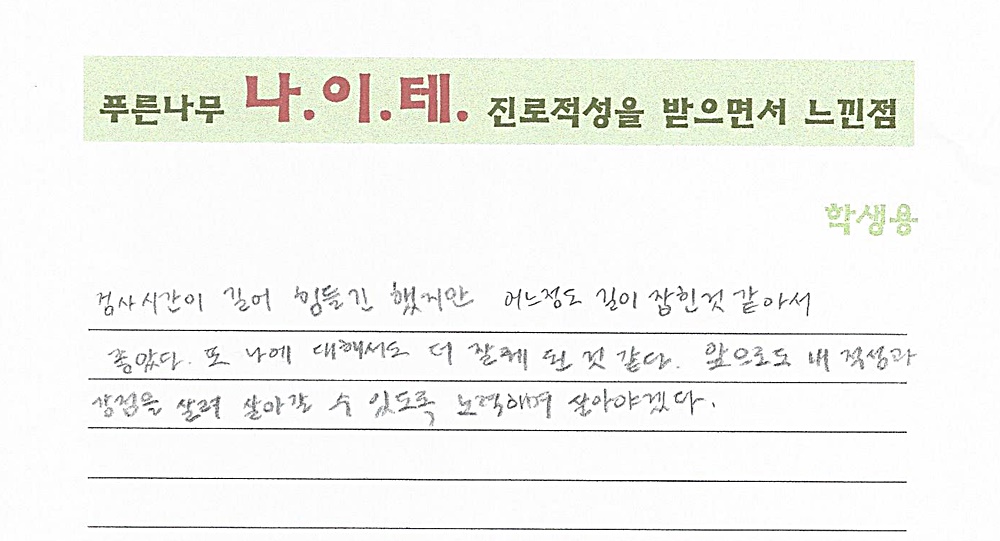 푸른나무 나.이.테. 진로적성을 받으면서 느낀점
학생용
검사시간이 길어 힘들긴 했지만 어느정도 길이 잡힌것 같아서
좋았다. 또 나에 대해서도 더 잘 된 것 같다. 앞으로도 내 적성과
장점을 살려 살아갈 수 있도록 노력하며 살아야겠다.